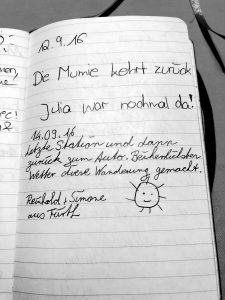 12.9.16
Die Mumie kehrt zurück
Julia war nochmal da!
14.09.16
Letzte Station und dann
zurück zum Auto. Bei herrlichstem
Wetter diese Wanderung gemacht.
Reinhold + Simone
aus Fürth